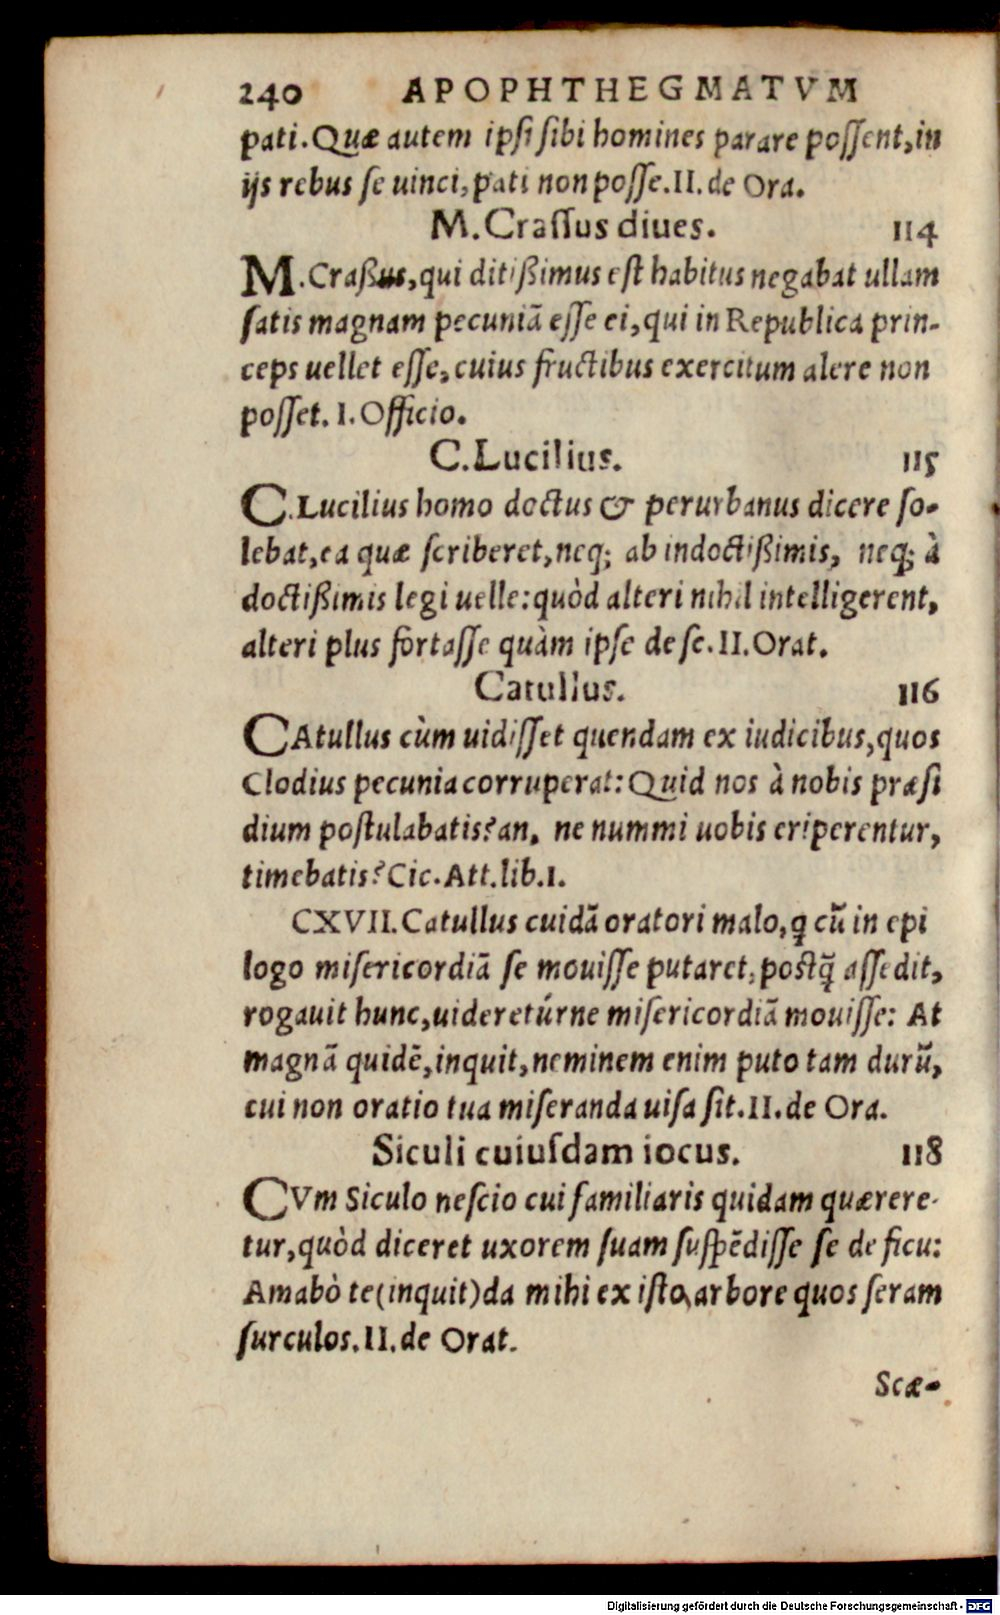 240 APOPHTHEGMATVM
pati. Quæ autem ipsi sibi homines parare possent, in
ijs rebus se uinci, pati non posse. II. de Ora.
M. Crassus diues. 114
M. Craßus, qui ditißimus est habitus negabat ullam
satis magnam pecuniã esse ei, qui in Republica prin-
ceps uellet esse, cuius fructibus exercitum alere non
posset. I. Officio.
C. Lucilius. 115
C. Lucilius homo doctus & perurbanus dicere so-
lebat, ea quæ scriberet, neq; ab indoctißimis, neq; à
doctißimis legi uelle: quòd alteri nihil intelligerent,
alteri plus fortasse quàm ipse de se. II. Orat.
Catullus. 116
CAtullus cùm uidisset quendam ex iudicibus, quos
Clodius pecunia corruperat: Quid nos à nobis præsi
dium postulabatis? an, ne nummi uobis eriperentur,
timebatis? Cic. Att. lib. I.
CXVII. Catullus cuidã oratori malo, q̃ cũ in epi
logo misericordiã se mouisse putaret, postq̃ assedit,
rogauit hunc, uidereturne misericordiã mouisse: At
magnã quidẽ, inquit, neminem enim puto tam durũ,
cui non oratio tua miseranda uisa sit. II. de Ora.
Siculi cuiusdam iocus. 118
CVm Siculo nescio cui familiaris quidam quærere-
tur, quòd diceret uxorem suam suspẽdisse se de ficu:
Amabò te (inquit) da mihi ex isto, arbore quos seram
surculos. II. de Orat.
Scæ-
Digitalisierung gefördert durch die Deutsche Forschungsgemeinschaft - DFG